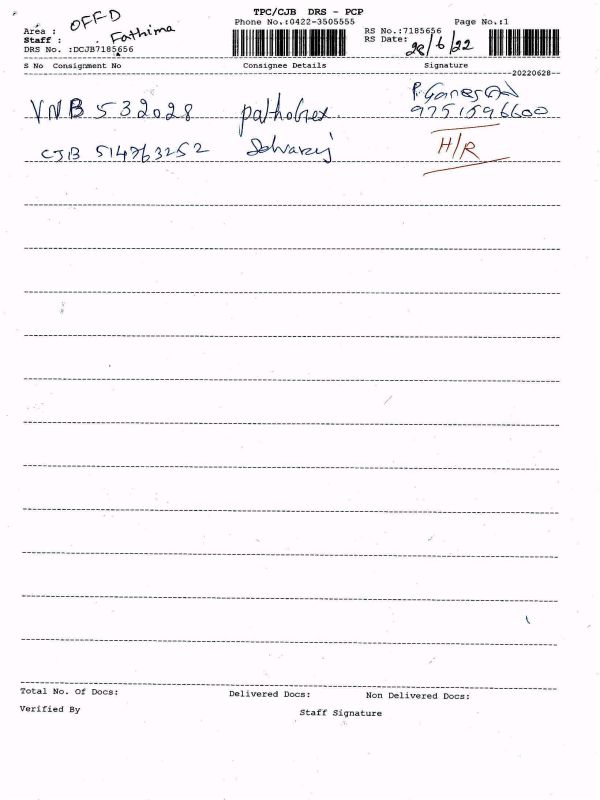 TPC/CJB DRS - PCP
Phone No.:0422-3505555 Page No.:1
Area : OFF-D
Staff : Fathima
DRS No. :DCJB7185656
RS No.:7185656
RS Date: 28/6/22
S No Consignment No Consignee Details Signature
20220628
P. Ganesan
VNB 532028 pathobex 9751596600
CJB 514763252 Selvaraj H/R
Total No. Of Docs: Delivered Docs: Non Delivered Docs:
Verified By Staff Signature